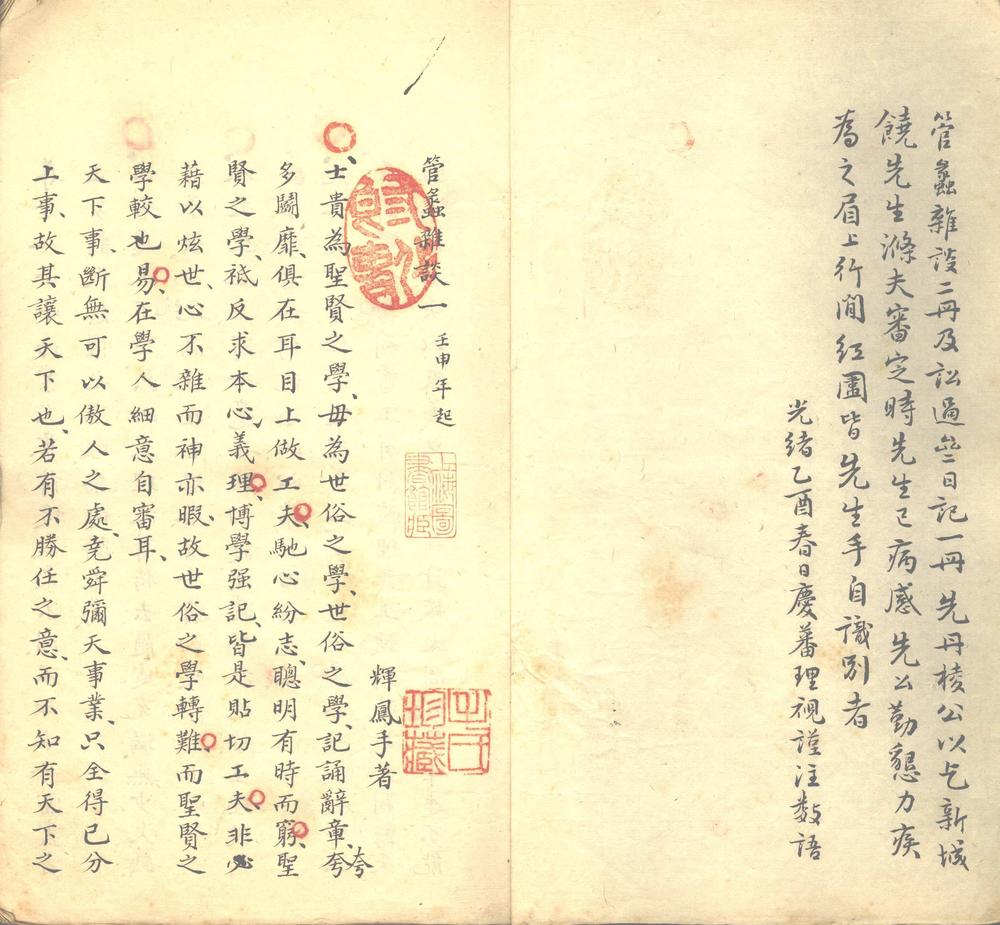 管蠡雜設二冊及訟過齋日記一冊先丹棱公以乞新城
饒先生滌夫審定時先生已病感先公勤懇力疾
為之眉上行間紅圈皆先生手自識別者
光緒乙酉春日慶蕃理視謹注數語
管蠡雜談一 壬申年起
輝鳳手著
士貴為聖賢之學、毋為世俗之學、世俗之學、記誦辭章、夸
多鬬靡、俱在耳目上做工夫、馳心紛志、聰明有時而窮、聖
賢之學、祗反求本心、義理、博學强記、皆是貼切工夫、非必
藉以炫世、心不雜而神亦暇、故世俗之學轉難、而聖賢之
學較也易、在學人細意自審耳、
天下事、斷無可以傲人之處、堯舜彌天事業、只全得已分
上事、故其讓天下也、若有不勝任之意、而不知有天下之
上海圖
書館藏
珍藏